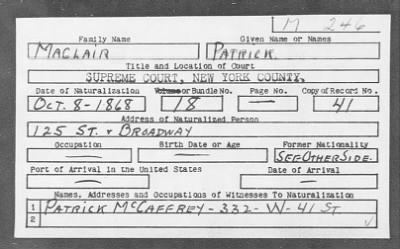 M 246
Family Name Given Name or Names
MACLAIR PATRICK
Title and Location of Court
SUPREME COURT, NEW YORK COUNTY.
Date of Naturalization Volume or Bundle No. Page No. Copy of Record No.
OCT. 8-1868 18 — 41
Address of Naturalized Person
125 ST. & BROADWAY
Occupation Birth Date or Age Former Nationality
— — SEE OTHER SIDE.
Port of Arrival in the United States Date of Arrival
— —
Names, Addresses and Occupations of Witnesses To Naturalization
1 PATRICK MCCAFFREY - 332 - W - 41 ST
2